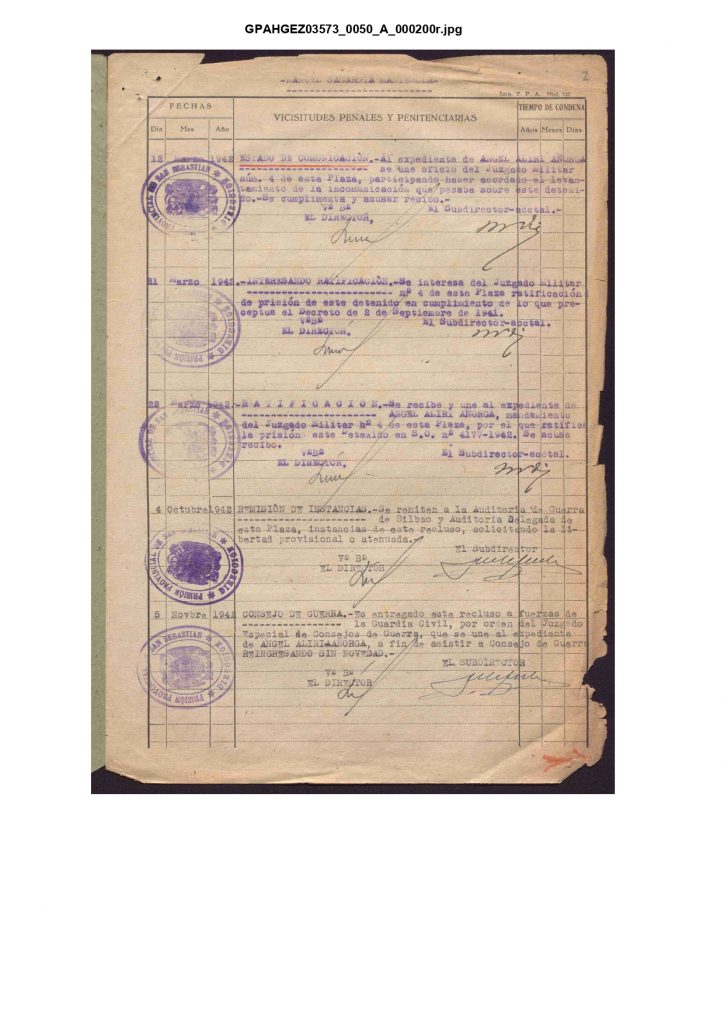 GPAHGEZ03573_0050_A_000200r.jpg
2
Imp. T. P. A.
FECHAS
VICISITUDES PENALES Y PENITENCIARIAS
TIEMPO DE CONDENA
Día Mes Año
Años Meses Días
12 Marzo 1942 ESTADO DE COMUNICACIÓN.-Al expediente de ANGEL ALIRI AÑORGA
se une oficio del Juzgado Militar
núm. 4 de esta Plaza, participando haber acordado el levan-
tamiento de la incomunicación que pesaba sobre este deteni-
do.-Se cumplimenta y acusar recibo.-
Vº Bº El Subdirector-acctal.-
EL DIRECTOR,
21 Marzo 1942.-INTERESANDO RATIFICACIÓN.-Se interesa del Juzgado Militar
nº 4 de esta Plaza ratificación
de prición de este detenido en cumplimiento de lo que pre-
ceptua el Decreto de 2 de Septiembre de 1941.
VºBº El Subdirector-acctal.
EL DIRECTOR.
22 Marzo 1942.-RATIFICACION.-Se recibe y une al expediente de
ANGEL ALIRI AÑORGA, mandamiento
del Juzgado Militar nº 4 de esta Plaza, por el que ratifica
la prisión este Detenido en S.O. nº 4177-1942. Se acusa
recibo.
VºBº El Subdirector-acctal.
EL DIRECTOR.
4 Octubre 1942 REMISIÓN DE INSTANCIAS.-Se remiten a la Auditoria de Guerra
de Bilbao y Auditoria Delegada de
esta Plaza, instancias de este recluso, solicitando la li-
bertad provisional o atenuada.-
Vº Bº El Subdirector
EL DIRECTOR
5 Novbre 1942 CONSEJO DE GUERRA.-Es entregado este recluso a fuerzas de
la Guardia Civil, por orden del Juzgado
Especial de Consejos de Guerra, que se une al expediente
de ANGEL ALIRI AÑORGA, a fin de asistir a Consejo de Guerra
REINGRESANDO SIN NOVEDAD.-
Vº Bº EL SUBDIRECTOR
EL DIRECTOR
PRISIÓN PROVINCIAL DE SAN SEBASTIAN DIRECCION